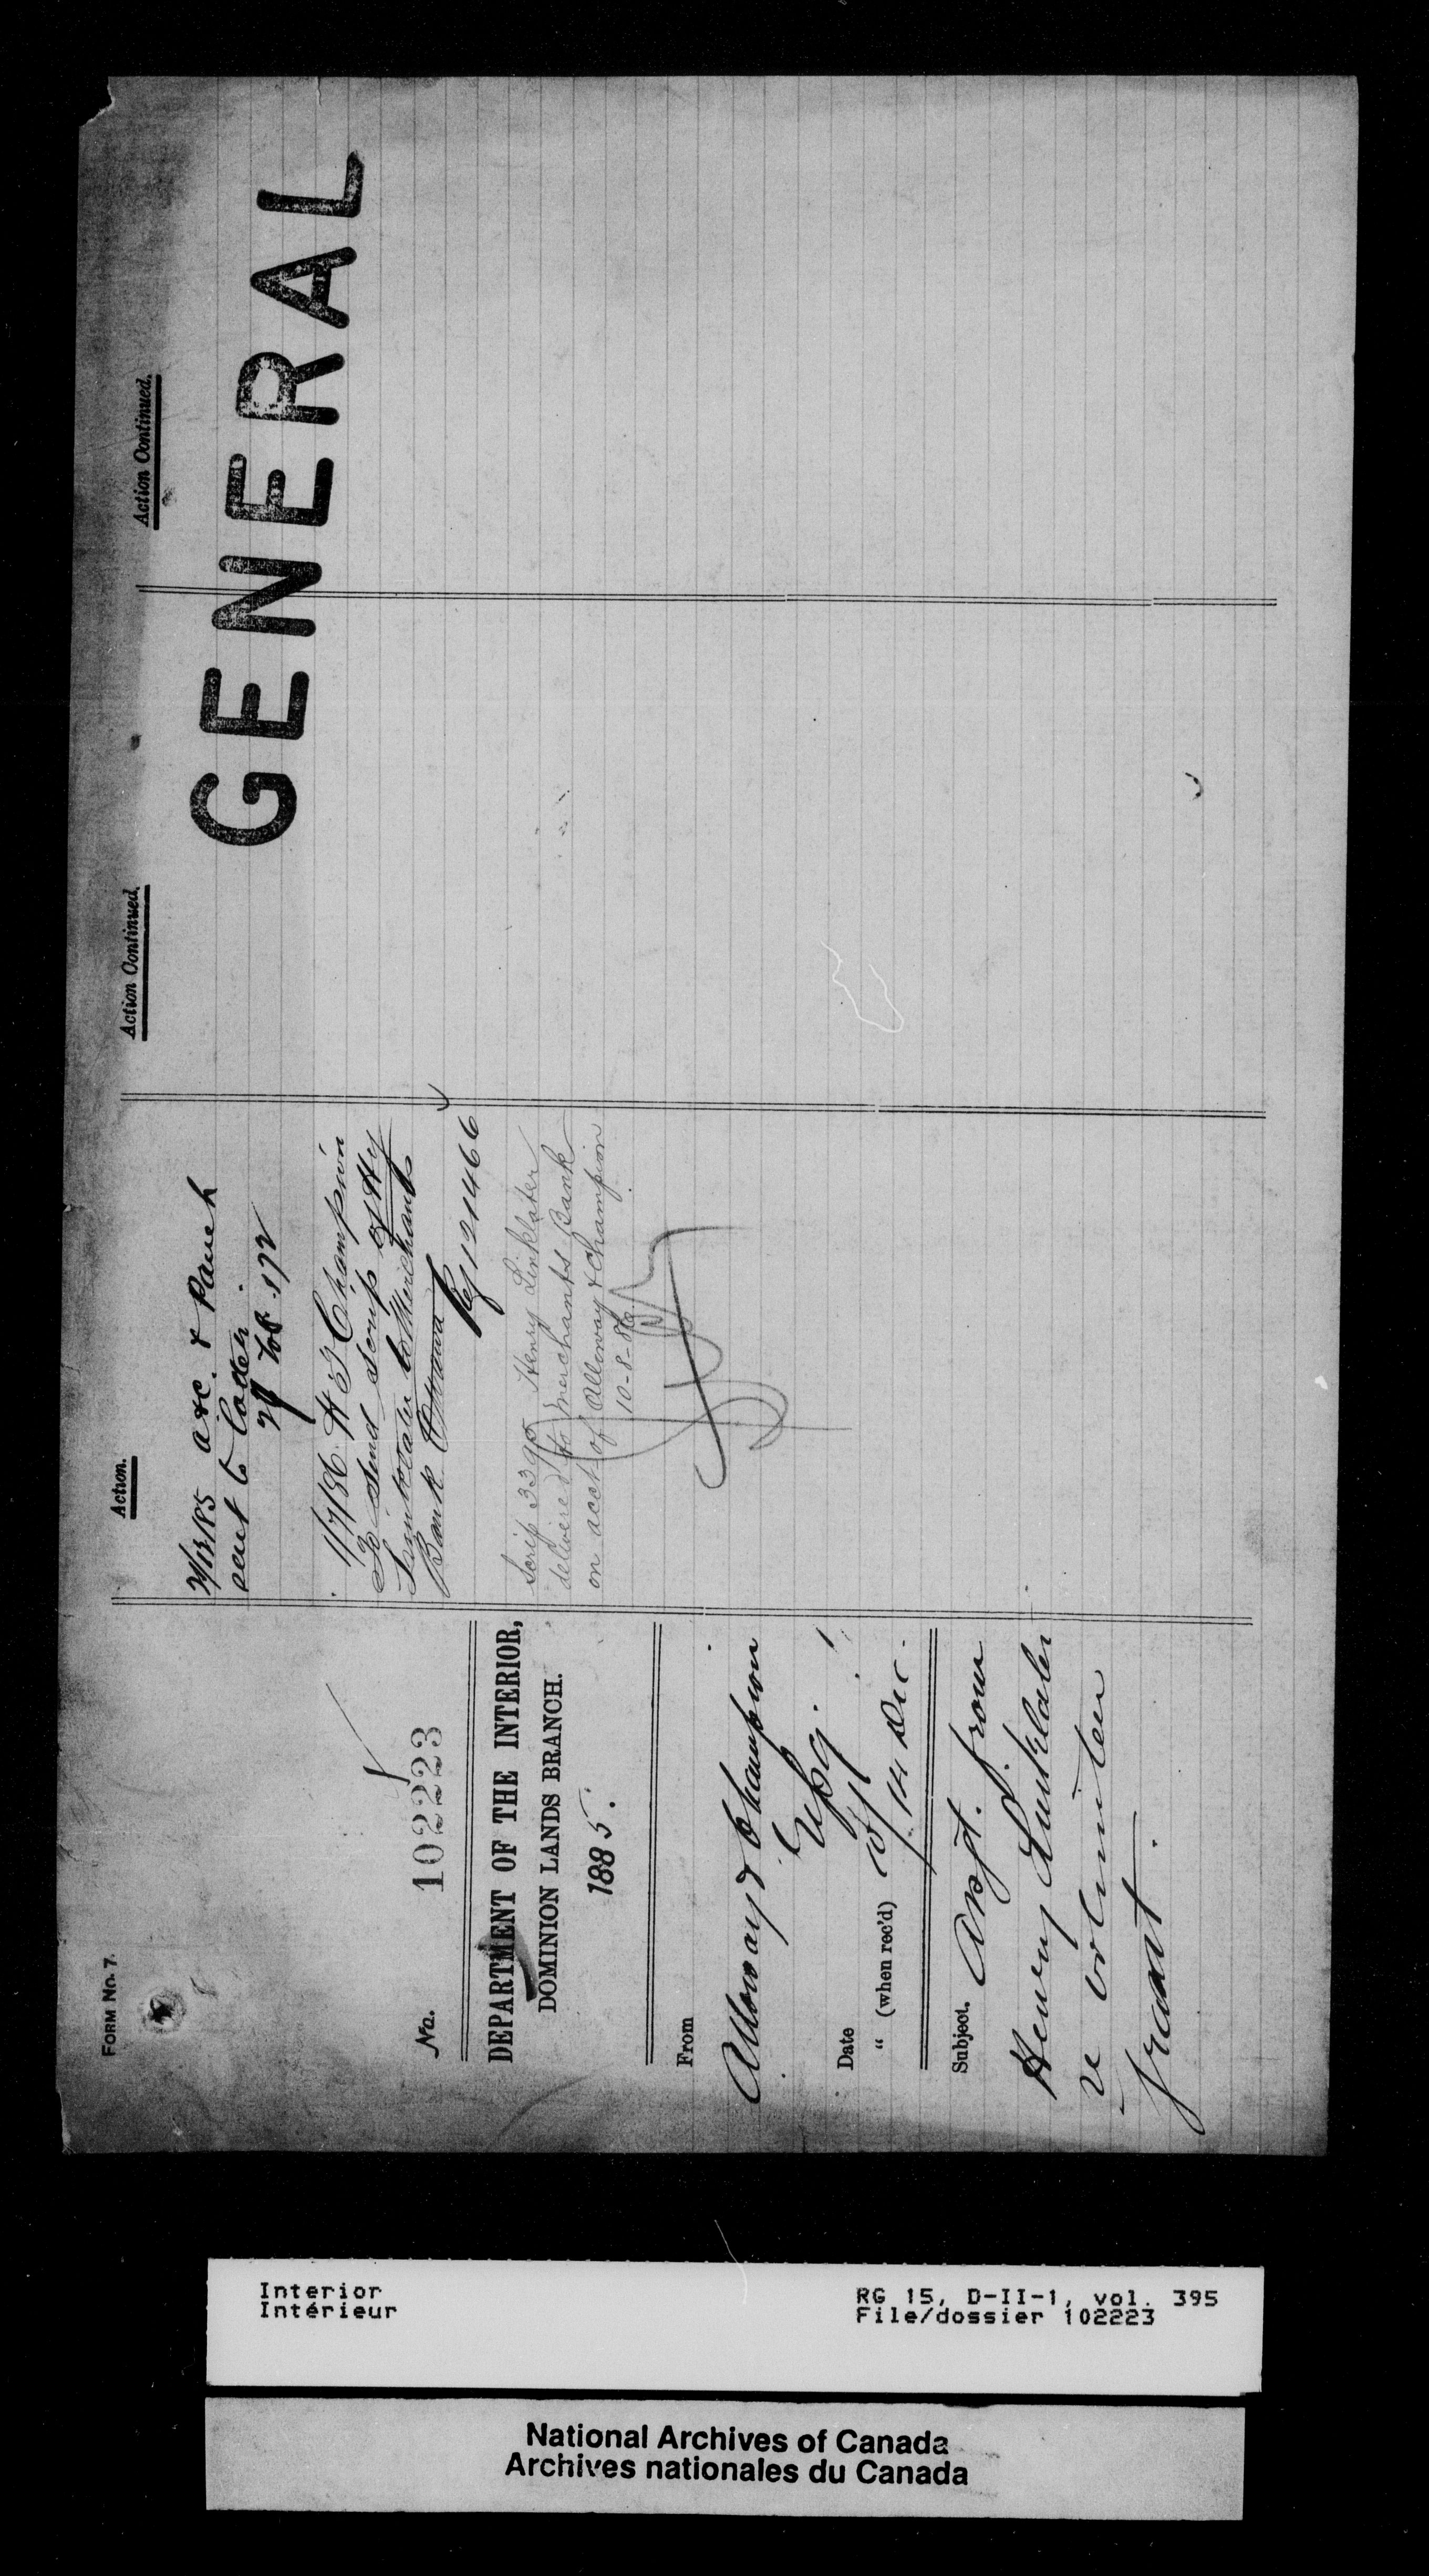 FORM No. 7.
No. 102223
DEPARTMENT OF THE INTERIOR,
DOMINION LANDS BRANCH.
1885.
From
Alloway & Champion
Wpg.
Date
" (when rec'd) 14 Dec.
Subject. Asgt. from
Henry Linklater
re volunteer
grant.
Action.
21/12/85 ack. &
sent to
fol. 172
1/7/86 Champion
To send scrip of Hy
Linklater to Merchants
Bank Ottawa
Ref 121466
Scrip 3390 Henry Linklater
delivered to Merchants Bank
on acct of Alloway & Champion
10-8-86
Action Continued.
Action Continued.
GENERAL
Interior
Intérieur
RG 15, D-II-1, vol. 395
File/dossier 102223
National Archives of Canada
Archives nationales du Canada